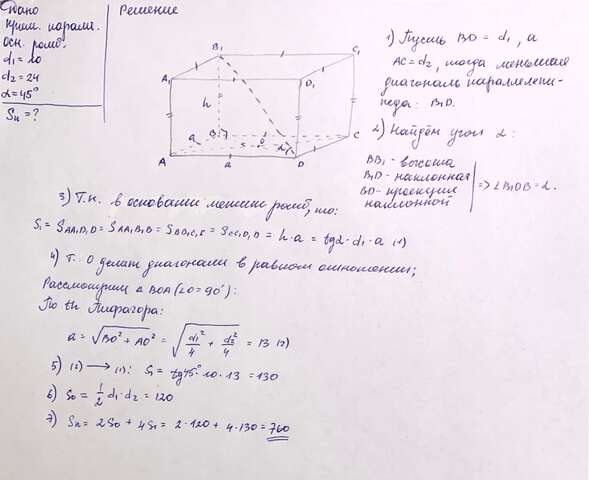 Дано
прям. паралл.
осн. ромб.
d₁ = 10
d₂ = 24
α = 45°
Sп = ?
Решение
B₁
C₁
A₁
D₁
h
B
C
a
s
O
α
A
a
D
1) Пусть BD = d₁, а
AC = d₂, тогда меньшая
диагональ параллелепи-
педа: B₁D.
2) Найдём угол α:
BB₁ - высота
B₁D - наклонная
BD - проекция
наклонной
=> ∠B₁DB = α.
3) Т.к. в основании лежит ромб, то:
S₁ = SAA₁D₁D = SAA₁B₁B = SBB₁C₁C = SCC₁D₁D = h·a = tgα·d₁·a (1)
4) Т. O делит диагонали в равном отношении;
Рассмотрим Δ BOA (∠O = 90°):
По th Пифагора:
a = √BO² + AO² = √d₁²/4 + d₂²/4 = 13 (2)
5) (2) → (1): S₁ = tg45°·10·13 = 130
6) S₀ = 1/2 d₁·d₂ = 120
7) Sп = 2S₀ + 4S₁ = 2·120 + 4·130 = 760